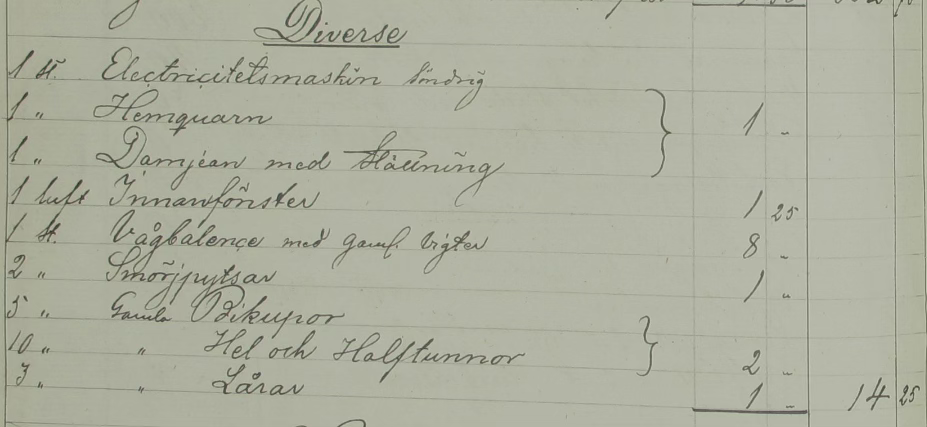 Diverse
1 st. Electricitetsmaskin söndrig
1 " Hemquarn 1 "
1 " Damjean med Ställning
1 luft Innanfönster 1 25
1 st. Vågbalence med gaml. Vigter 8 "
2 " Smörjpytsar 1 "
5 " Gamla Bikupor
10 " " Hel och Halftunnor 2 "
3 " " Lårar 1 " 14 25